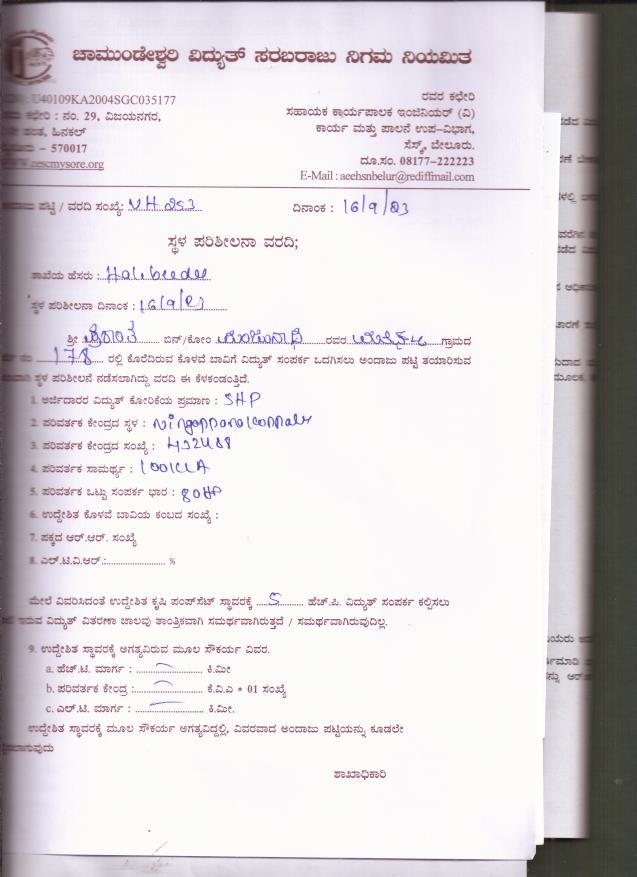 ಚಾಮುಂಡೇಶ್ವರಿ ವಿದ್ಯುತ್ ಸರಬರಾಜು ನಿಗಮ ನಿಯಮಿತ
U40109KA2004SGC035177
ಕಛೇರಿ : ನಂ. 29, ವಿಜಯನಗರ,
ಹಂತ, ಹಿನಕಲ್
– 570017
www.cescmysore.org
ರವರ ಕಛೇರಿ
ಸಹಾಯಕ ಕಾರ್ಯಪಾಲಕ ಇಂಜಿನಿಯರ್ (ವಿ)
ಕಾರ್ಯ ಮತ್ತು ಪಾಲನೆ ಉಪ–ವಿಭಾಗ,
ಸೆಸ್ಕ್, ಬೇಲೂರು.
ದೂ.ಸಂ. 08177–222223
E-Mail : aeehsnbelur@rediffmail.com
ಪಟ್ಟಿ / ವರದಿ ಸಂಖ್ಯೆ: 253 ದಿನಾಂಕ : 16/9/23
ಸ್ಥಳ ಪರಿಶೀಲನಾ ವರದಿ;
ಶಾಖೆಯ ಹೆಸರು : Halebeedu
ಸ್ಥಳ ಪರಿಶೀಲನಾ ದಿನಾಂಕ : 16/9/23
ಶ್ರೀ ಬಿನ್/ಕೋಂ ರವರ ಗ್ರಾಮದ
178 ರಲ್ಲಿ ಕೊರೆದಿರುವ ಕೊಳವೆ ಬಾವಿಗೆ ವಿದ್ಯುತ್ ಸಂಪರ್ಕ ಒದಗಿಸಲು ಅಂದಾಜು ಪಟ್ಟಿ ತಯಾರಿಸುವ
ಸ್ಥಳ ಪರಿಶೀಲನೆ ನಡೆಸಲಾಗಿದ್ದು ವರದಿ ಈ ಕೆಳಕಂಡಂತ್ತಿದೆ.
1. ಅರ್ಜಿದಾರರ ವಿದ್ಯುತ್ ಕೋರಿಕೆಯ ಪ್ರಮಾಣ : 5HP
2. ಪರಿವರ್ತಕ ಕೇಂದ್ರದ ಸ್ಥಳ :
3. ಪರಿವರ್ತಕ ಕೇಂದ್ರದ ಸಂಖ್ಯೆ :
4. ಪರಿವರ್ತಕ ಸಾಮರ್ಥ್ಯ :
5. ಪರಿವರ್ತಕ ಒಟ್ಟು ಸಂಪರ್ಕ ಭಾರ : 80HP
6. ಉದ್ದೇಶಿತ ಕೊಳವೆ ಬಾವಿಯ ಕಂಬದ ಸಂಖ್ಯೆ :
7. ಪಕ್ಕದ ಆರ್.ಆರ್. ಸಂಖ್ಯೆ
8. ಎಲ್.ಟಿ.ವಿ.ಆರ್.:........................ %
ಮೇಲೆ ವಿವರಿಸಿದಂತೆ ಉದ್ದೇಶಿತ ಕೃಷಿ ಪಂಪ್‌ಸೆಟ್ ಸ್ಥಾವರಕ್ಕೆ 5 ಹೆಚ್.ಪಿ. ವಿದ್ಯುತ್ ಸಂಪರ್ಕ ಕಲ್ಪಿಸಲು
ಇರುವ ವಿದ್ಯುತ್ ವಿತರಣಾ ಜಾಲವು ತಾಂತ್ರಿಕವಾಗಿ ಸಮರ್ಥವಾಗಿರುತ್ತದೆ / ಸಮರ್ಥವಾಗಿರುವುದಿಲ್ಲ.
9. ಉದ್ದೇಶಿತ ಸ್ಥಾವರಕ್ಕೆ ಅಗತ್ಯವಿರುವ ಮೂಲ ಸೌಕರ್ಯ ವಿವರ.
a. ಹೆಚ್.ಟಿ. ಮಾರ್ಗ : ........................ ಕಿ.ಮೀ
b. ಪರಿವರ್ತಕ ಕೇಂದ್ರ :........................ ಕೆ.ವಿ.ಎ * 01 ಸಂಖ್ಯೆ
c. ಎಲ್.ಟಿ. ಮಾರ್ಗ : ........................ ಕಿ.ಮೀ.
ಉದ್ದೇಶಿತ ಸ್ಥಾವರಕ್ಕೆ ಮೂಲ ಸೌಕರ್ಯ ಅಗತ್ಯವಿದ್ದಲ್ಲಿ, ವಿವರವಾದ ಅಂದಾಜು ಪಟ್ಟಿಯನ್ನು ಕೂಡಲೇ
ಶಾಖಾಧಿಕಾರಿ